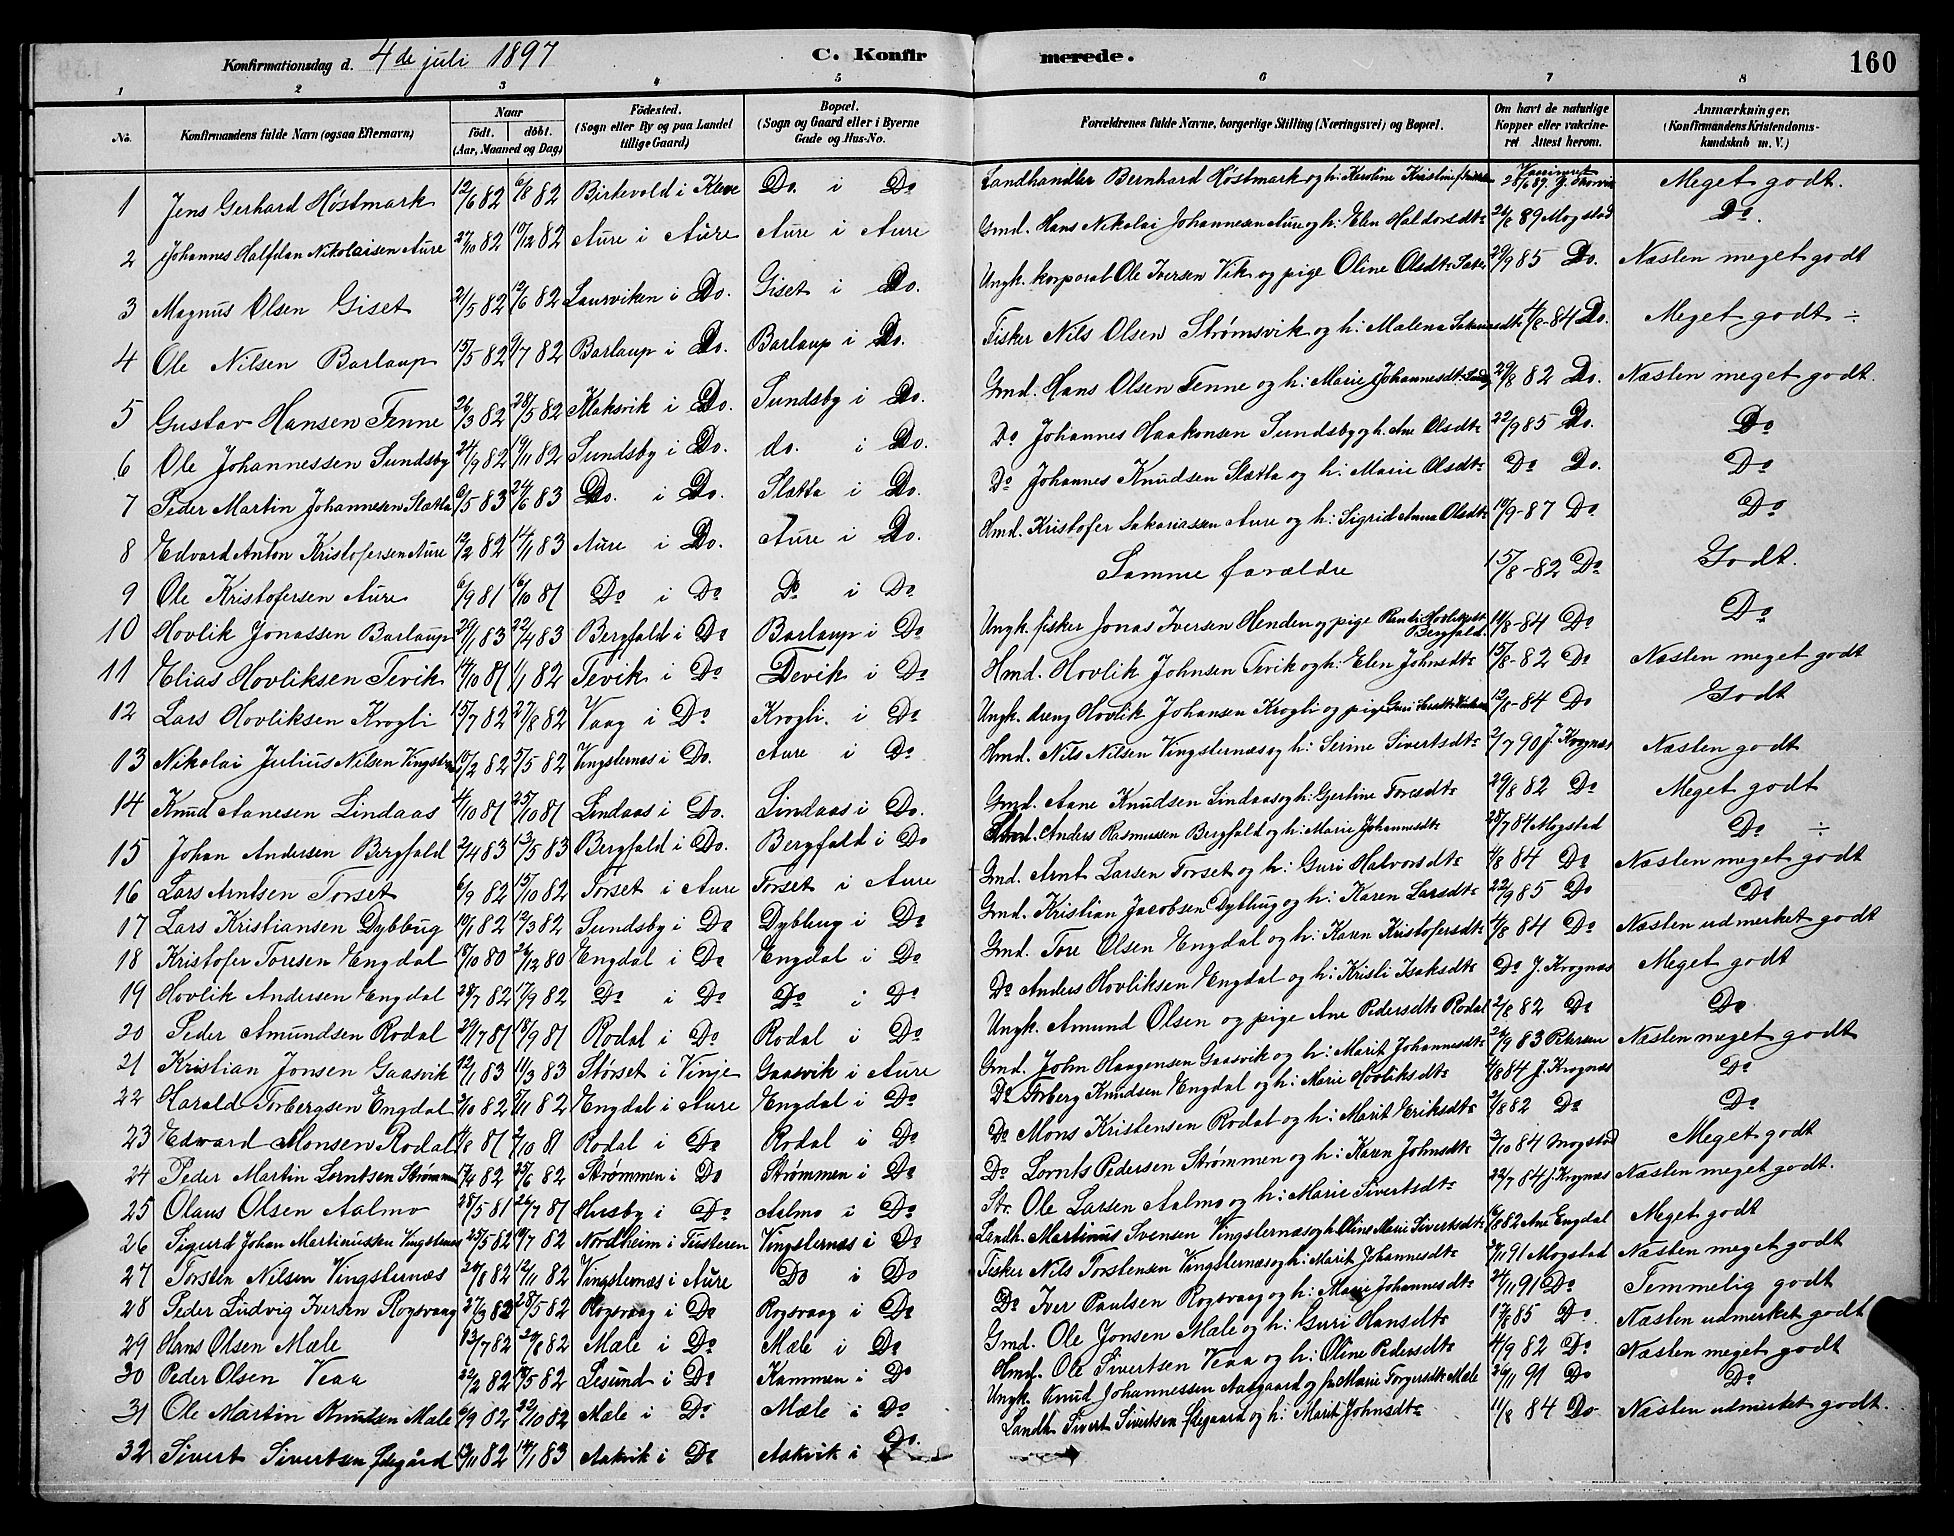 Konfirmationsdag d. 4de juli 1897 C. Konfirmerede. 160
1 2 3 4 5 6 7 8
No. Konfirmandens fulde Navn (ogsaa Efternavn) Naar født. døbt. (Aar, Maaned og Dag) Födested. (Sogn eller By og paa Landet tillige Gaard) Bopæl. (Sogn og Gaard eller i Byerne Gade og Hus-No. Forældrenes fulde Navne, borgerlige Stilling (Næringsvei) og Bopæl. Om havt de naturlige Kopper eller vakcineret Attest herom. Anmærkninger, (Konfirmandens Kristendomskundskab m. V.)
1 Jens Gerhard Høstmark 12/6 82 6/8 82 Birkevold i Do. i Do Landhandler Bernhard Høstmark og h: Karoline Kristine 28/6 89 Meget godt.
2 Johannes Halfdan Nikolaisen Aure 27/10 82 10/12 82 Aure i Aure Aure i Aure Gmd. Hans Nikolai Johannesen Aure og h: Elen Haldorsdtr 89 Mogstad Do.
3 Magnus Olsen Giset 21/5 82 12/6 82 Laurviken i Do. Giset i Do. Ungk. korporal Ole Iversen Vik og pige Oline Olsdtr 22/9 85 Do. Næsten meget godt
4 Ole Nilsen Barlaup 15/5 82 9/7 82 Barlaup i Do. Barlaup i Do. Fisker Nils Olsen Strømsvik og h: Malena 84 Do. Meget godt ÷
5 Gustav Hansen Tenne 26/3 82 28/5 82 Klaksvik i Do. Sundsby i Do. Gmd. Hans Olsen Tenne og h: Marie Johannesdt. 29/8 82 Do. Næsten meget godt.
6 Ole Johannessen Sundsby 24/9 82 19/11 82 Sundsby i Do. do. i Do. Do Johannes Haakonsen Sundsby og h. Ane Olsdtr 22/9 85 Do. Do
7 Peder Martin Johannesen Slætta 6/5 83 24/6 83 Do. i Do. Slætta i Do. Do Johannes Knudsen Slætta og h: Marie Olsdtr Do Do. Do
8 Edvard Anton Kristofersen Aure 12/2 82 14/1 83 Aure i Do. Aure i Do. Hmd. Kristofer Sakariassen Aure og h: Sigrid Anna Olsdtr 19/9-87 Do Do
9 Ole Kristofersen Aure 6/9 81 16/10 81 Do i Do Do i Do Samme forældre 15/8-82 Do Godt.
10 Hovlik Jonassen Barlaup 29/1 83 22/4 83 Bergfald i Do Barlaup i Do Ungk. fisker Jonas Iversen Henden og pige Bergfald. 14/8-84 Do Do
11 Elias Hovliksen Tevik 14/10 81 1/1 82 Tevik i Do Tevik i Do Hmd. Hovlik Johnsen Tevik og h: Elen Johnsdtr 15/8-82 Do Næsten meget godt
12 Lars Hovliksen Krogli 15/7 82 27/8 82 Vaag i Do Krogli. i Do Ungk. dreng Hovlik Johansen Krogli og pige Guri 12/8-84 Do Godt
13 Nikolai Julius Nilsen 19/2 82 5/5 82 Vingsternes i Do. Aure i Do Hmd. Nils Nilsen Vingsternæs og h: Serine Sivertsdtr 2/7 90 J. Krognæs Næsten godt
14 Knud Aanesen Lindaas 4/10 81 25/10 81 Lindaas i Do. Lindaas i Do. Gmd. Aane Knudsen Lindaas og h: Gjertine Toresdtr 29/8 82 Do Meget godt
15 Johan Andersen Bergfald 2/4 83 13/5 83 Bergfald i Do. Bergfald i Do Anders Rasmussen Bergfald og h: Marie Johannesdtr 28/7 84 Mogstad Do ÷
16 Lars Arntsen Torset 6/9 82 15/10 82 Torset i Aure Torset i Aure Gmd. Arnt Larsen Torset og h: Guri Halvorsdtr 4/8 84 Do Næsten meget godt
17 Lars Kristiansen Dybbug 19/1 82 12/3 82 Sundsby i Do Dybbug i Do Gmd. Kristian Jacobsen Dybbug og h: Karen Larsdtr 22/9 85 Do Do
18 Kristofer Toresen Engdal 18/10 80 26/12 80 Engdal i Do Engdal i Do Gmd. Tore Olsen Engdal og h: Karen Kristofersdtr 4/8 84 Do Næsten udmerket godt
19 Hovlik Andersen Engdal 28/7 82 17/9 82 Do i Do Do i Do Do Anders Hovliksen Engdal og h: Kristi Isaksdtr Do J. Krognæs Meget godt
20 Peder Amundsen Rodal 29/7 81 18/9 81 Rodal i Do Rodal i Do Ungk. Amund Olsen og pige Ane Pedersdtr Rodal 2/8 82 Do Do
21 Kristian Jonsen Gaasvik 12/1 83 11/3 83 Størset i Vinje Gaasvik i Aure Gmd. John Haagensen Gaasvik og h: Marit Johannesdtr 26/9 83 Petersen Næsten meget godt
22 Harald Torbergsen Engdal 2/10 82 5/11 82 Engdal i Aure Engdal i Do Do Torberg Knudsen Engdal og h: Marie Hovliksdtr 4/8 84 J. Krognæs Do
23 Edvard Monsen Rodal 4/8 81 2/10 81 Rodal i Do Rodal i Do Do Mons Kristensen Rodal og h: Marit Eriksdtr 2/8 82 Do Do
24 Peder Martin Lorntsen Strømmen 17/4 82 25/6 82 Strømmen i Do Strømmen i Do Do Lornts Pedersen Strømmen og h: Karen Johnsdtr 2/10 84 Mogstad Meget godt
25 Olaus Olsen Aalmo 28/5 81 24/7 81 Husby i Do Aalmo i Do Str. Ole Larsen Aalmo og h: Marie Sivertsdtr 22/7 84 J. Krognæs Næsten meget godt.
26 Sigurd Johan Martinussen Vingsternes 25/5 82 16/7 82 Nordheim i Tusteren Vingsternæs i Do Landh. Martinus Svensen Vingsternæs og h. Oline Marie Sivertsdtr 6/8 82 Ane Engdal Meget godt
27 Torsten Nilsen Vingsternæs 24/8 82 12/11 82 Vingsternæs i Aure Do i Do Fisker Nils Torstensen Vingsternæs og h: Marit Johannesdtr 91 Mogstad Næsten meget godt
28 Peder Ludvig Iversen Rogsvaag 27/3 82 28/5 82 Rogsvaag i Do Rogsvaag i Do Do Iver Paulsen Rogsvaag og h: Marie Johannesdtr 24/11 91 Do Temmelig godt
29 Hans Olsen Mæle 13/7 82 20/8 82 Mæle i Do Mæle i Do Gmd. Ole Jonsen Mæle og h: Guri Hansdtr 17/8 85 Do Næsten udmerket godt
30 Peder Olsen Veaa 22/2 82 19/5 82 Lesund i Do Kammen i Do Hmd. Ole Sivertsen Veaa og h: Oline Pedersdtr 4/9 82 Do Næsten meget godt
31 Ole Martin Knutsen Mæle 6/9 82 22/10 82 Mæle i Do Mæle i Do Ungk. Knud Johannessen Aasgaard og Marie Torgersdtr Mæle 26/11 91 Do Do
32 Sivert Sivertsen Ødegård 13/11 82 14/1 83 Aakvik i Do Aakvik i Do. Landh Sivert Sivertsen Ødegaard og h: Marit Johnsdtr 11/8 84 Do Næsten udmerket godt.